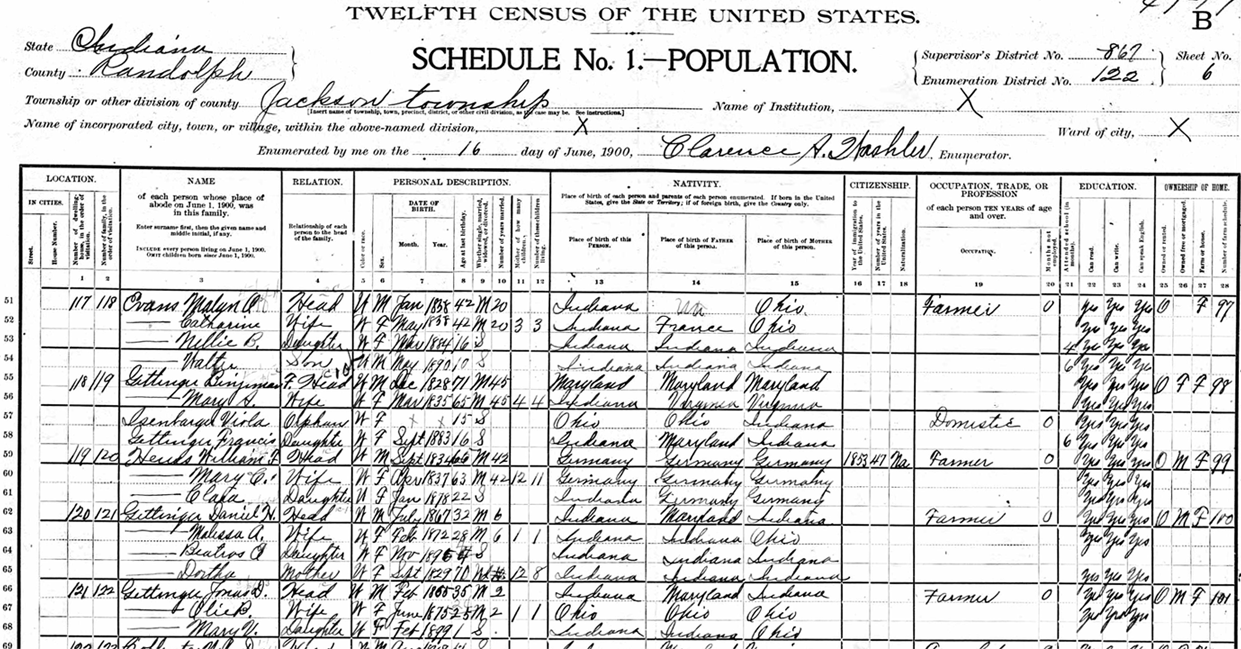 TWELFTH CENSUS OF THE UNITED STATES.
B
State Indiana
County Randolph
SCHEDULE No. 1.—POPULATION.
Supervisor's District No. 867
Enumeration District No. 122
Sheet No. 6
Township or other division of county Jackson township Name of Institution, X
[Insert name of township, town, precinct, district, or other civil division, as the case may be. See instructions.]
Name of incorporated city, town, or village, within the above-named division, X Ward of city, X
Enumerated by me on the 16 day of June, 1900, Clarence A. Enumerator.
LOCATION. NAME RELATION. PERSONAL DESCRIPTION. NATIVITY. CITIZENSHIP. OCCUPATION, TRADE, OR PROFESSION EDUCATION. OWNERSHIP OF HOME.
IN CITIES. Street. House Number. Number of dwelling-house, in the order of visitation. Number of family, in the order of visitation.
of each person whose place of abode on June 1, 1900, was in this family.
Enter surname first, then the given name and middle initial, if any.
INCLUDE every person living on June 1, 1900.
OMIT children born since June 1, 1900.
Relationship of each person to the head of the family.
Color or race. Sex. DATE OF BIRTH. Month. Year. Age at last birthday. Whether single, married, widowed, or divorced. Number of years married. Mother of how many children. Number of these children living.
Place of birth of each person and parents of each person enumerated. If born in the United States, give the State or Territory; if of foreign birth, give the Country only.
Place of birth of this PERSON. Place of birth of FATHER of this person. Place of birth of MOTHER of this person.
Year of immigration to the United States. Number of years in the United States. Naturalization.
of each person TEN YEARS of age and over.
OCCUPATION. Months not employed.
Attended school (in months). Can read. Can write. Can speak English.
Owned or rented. Owned free or mortgaged. Farm or house. Number of farm schedule.
1 2 3 4 5 6 7 8 9 10 11 12 13 14 15 16 17 18 19 20 21 22 23 24 25 26 27 28
51 117 118 Evans Head W M Jan 1858 42 M 20 Indiana Ohio Farmer 0 Yes Yes Yes O F 97
52 Catharine Wife W F May 1858 42 M 20 3 3 Indiana France Ohio Yes Yes Yes
53 Nellie B. Daughter W F Mar 1884 16 S Indiana Indiana Indiana 4 Yes Yes Yes
54 Walter Son W M May 1890 10 S Indiana Indiana Indiana 6 Yes Yes Yes
55 118 119 Gettinger Head W M Dec 1828 71 M 45 Maryland Maryland Maryland Yes Yes Yes O F F 98
56 Mary A. Wife W F Mar 1835 65 M 45 4 4 Indiana Virginia Virginia Yes Yes Yes
57 Isenbarger Viola Orphan W F X X 15 S Ohio Ohio Indiana Domestic 0 Yes Yes Yes
58 Gettinger Francis Daughter W F Sept 1883 16 S Indiana Maryland Indiana 6 Yes Yes Yes
59 119 120 William F. Head W M Sept 1834 M 42 Germany Germany Germany 1853 47 Na Farmer 0 Yes Yes Yes O M F 99
60 Mary C. Wife W F Apr 1837 63 M 42 12 11 Germany Germany Germany Yes Yes Yes
61 Clara Daughter W F Jan 1878 22 S Indiana Germany Germany Yes Yes Yes
62 120 121 Gettinger Daniel H. Head W M July 1867 32 M 6 Indiana Maryland Indiana Farmer 0 Yes Yes Yes O M F 100
63 Malissa A. Wife W F Feb 1872 28 M 6 1 1 Indiana Indiana Ohio Yes Yes Yes
64 Daughter W F Nov 1895 4 S Indiana Indiana Indiana
65 Mother W F Sept 1829 70 12 8 Indiana Indiana Indiana Yes Yes Yes
66 121 122 Gettinger Jonas D. Head W M Feb 35 M 2 Indiana Maryland Indiana Farmer 0 Yes Yes Yes O M F 101
67 Olie B. Wife W F June 1875 25 M 2 1 1 Ohio Ohio Ohio Yes Yes Yes
68 Mary V. Daughter W F Feb 1899 1 S Indiana Indiana Ohio
69